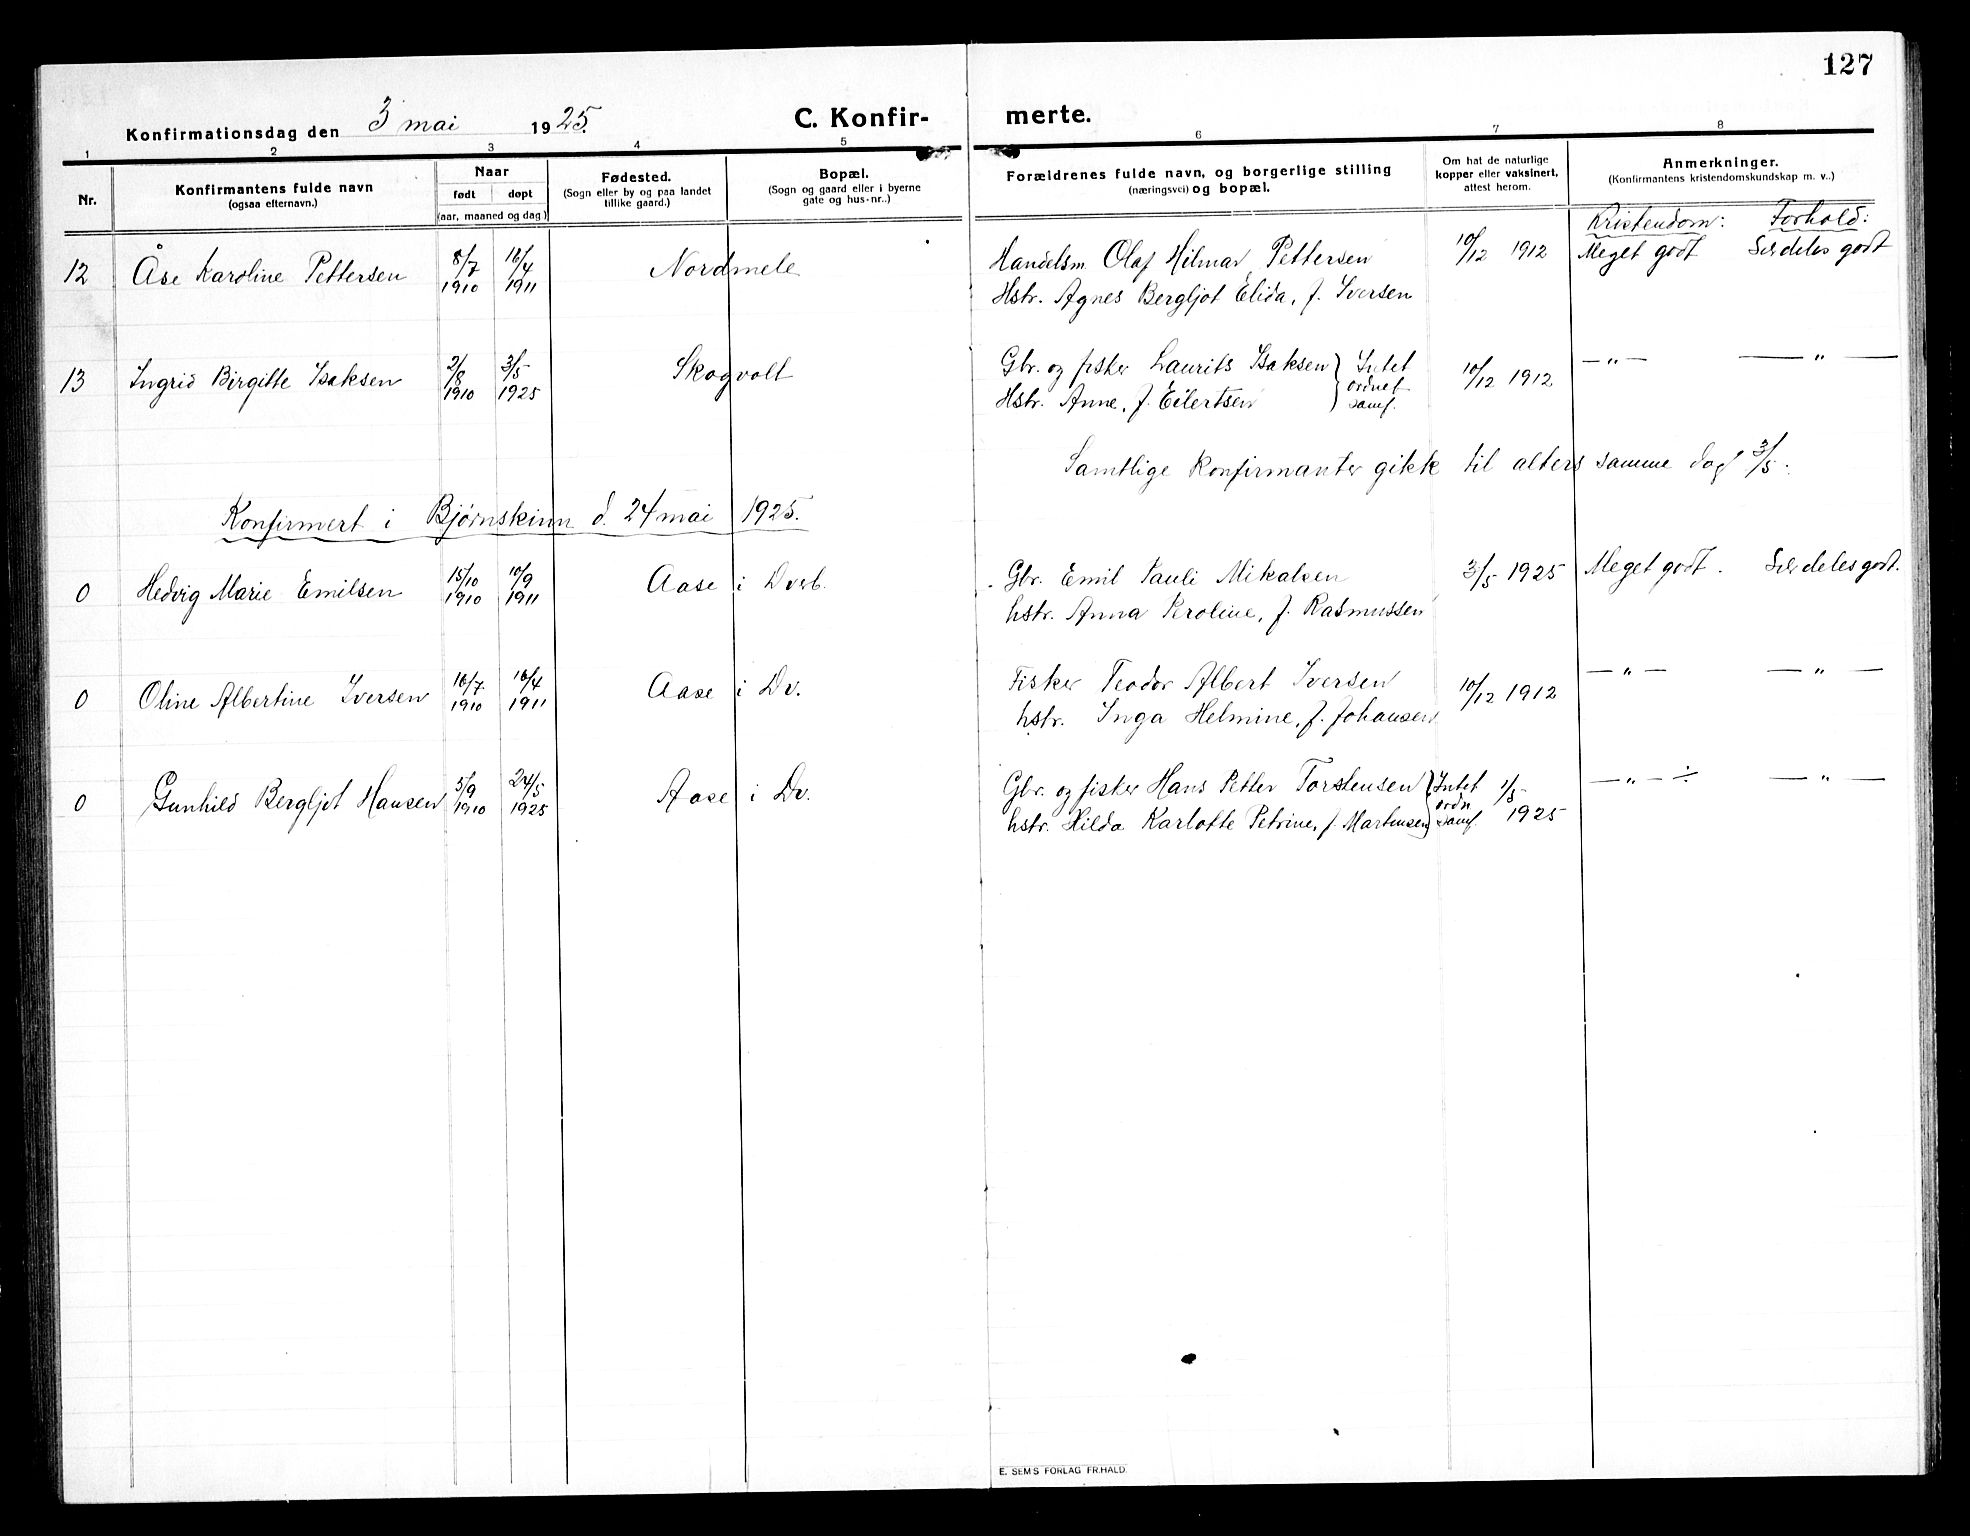 127
Konfirmationsdag den 3 mai 1925. C. Konfir- merte.
1 2 3 4 5 6 7 8
Nr.
Konfirmantens fulde navn
(ogsaa efternavn.)
Naar
født døpt
(aar, maaned og dag.)
Fødested.
(Sogn eller by og paa landet
tillike gaard.)
Bopæl.
(Sogn og gaard eller i byerne
gate og hus-nr..)
Forældrenes fulde navn, og borgerlige stilling
(næringsvei) og bopæl.
Om hat de naturlige
kopper eller vaksinert,
attest herom.
Anmerkninger.
(Konfirmantens kristendomskundskap m. v..)
Kristendom: Forhold:
12 Åse Karoline Pettersen 8/7 1910 16/4 1911 Nordmele Handelsm. Olaf Hilmar Pettersen 10/12 1912 Meget godt Serdeles godt
Hstr. Agnes Bergljot Elida, f. Iversen
13 Ingrid Birgitte Isaksen 2/8 1910 3/5 1925 Skogvolt Gbr. og fisker Laurits Isaksen } Intet ordnet samf. 10/12 1912 — „ — — „ —
Hstr. Anne, f. Eilertsen
Samtlige konfirmanter gikk til alters samme dag 3/5.
Konfirmert i Bjørnskinn d. 24 mai 1925.
0 Hedvig Marie Emilsen 15/10 1910 10/9 1911 Aase i Dverb. Gbr. Emil Pauli Mikalsen 3/5 1925 Meget godt. Serdeles godt.
hstr. Anna Peroline, f. Rasmussen
0 Oline Albertine Iversen 16/7 1910 16/4 1911 Aase i Dv. Fisker Teodor Albert Iversen 10/12 1912 — „ — — „ —
hstr. Inga Helmine, f. Johansen
0 Gunhild Bergljot Hansen 5/9 1910 24/5 1925 Aase i Dv. Gbr. og fisker Hans Petter Torstensen } Intet ordn samf. 1/5 1925 — „ — ÷ — „ —
hstr. Hilda Karlotte Petrine, f. Martensen
E. SEMS FORLAG FR.HALD.